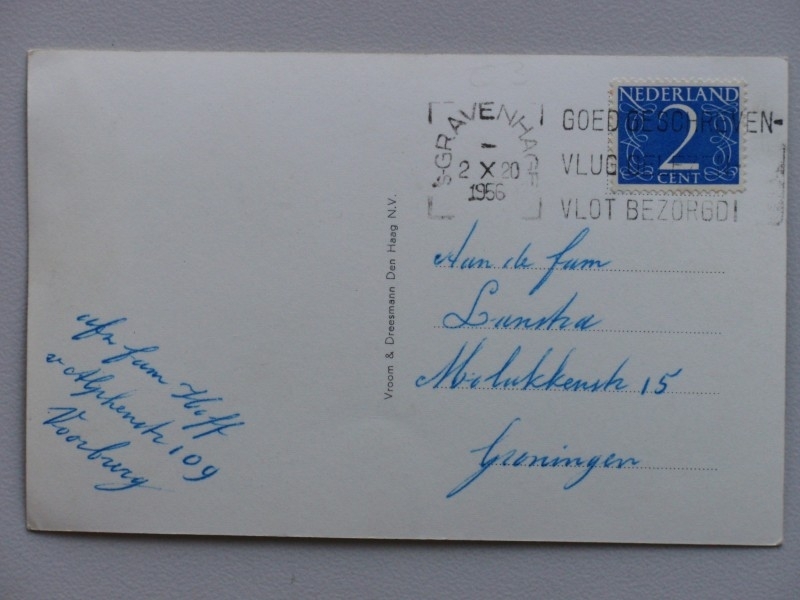 'S-GRAVENHAGE
- 
2 X 20
1956
GOED GESCHREVEN-
VLUG
VLOT BEZORGD!
NEDERLAND
2
CENT
Vroom & Dreesmann Den Haag N.V.
Aan de fam
Lanstra
Molukkenstr 15
Groningen
afz fam Hoff
v Alphenstr 109
Voorburg